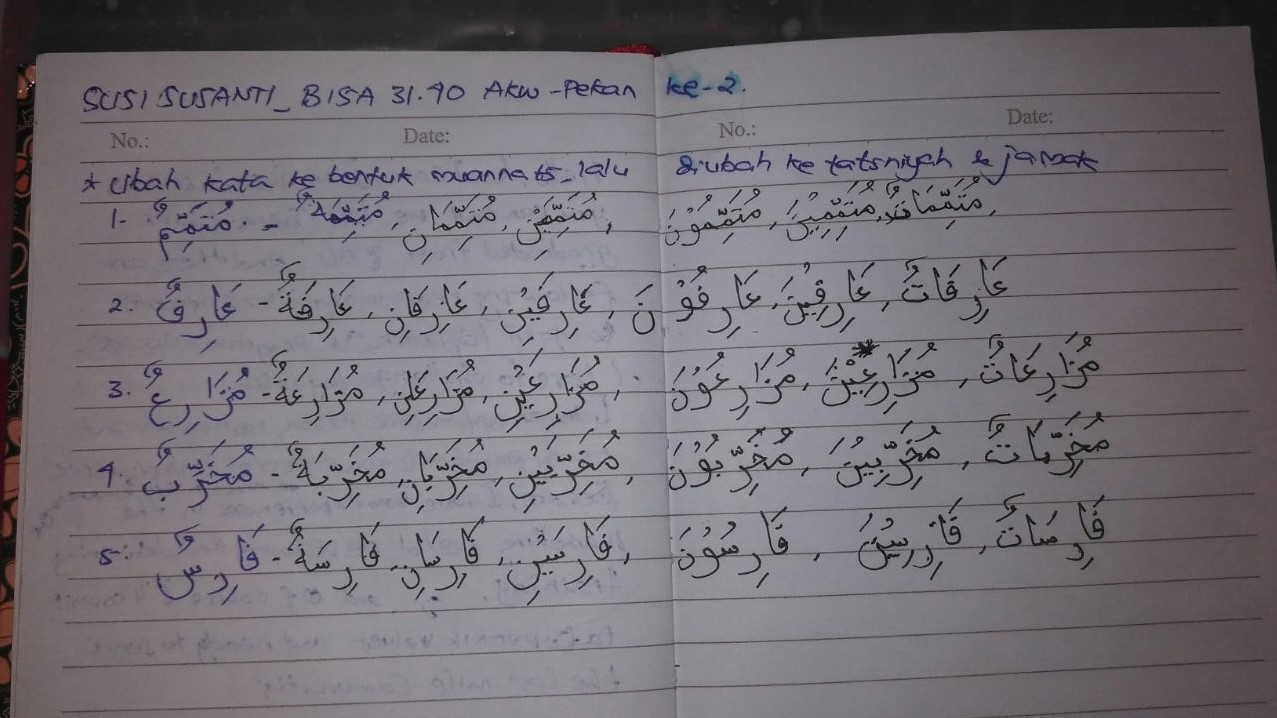 SUSI SUSANTI_ BISA 31.40 AKW - Pekan ke-2.
No.: Date: No.: Date:
* Ubah kata ke bentuk muannats_ lalu diubah ke tatsniyah & jamak
1. مُتَمِّمٌ - مُتَمِّمَةٌ, مُتَمِّمَانِ, مُتَمِّمَيْنِ, مُتَمِّمُوْنَ, مُتَمِّمِيْنَ, مُتَمِّمَاتٌ.
2. عَارِفٌ - عَارِفَةٌ, عَارِفَانِ, عَارِفَيْنِ, عَارِفُوْنَ, عَارِفِيْنَ, عَارِفَاتٌ
3. مُزَارِعٌ - مُزَارِعَةٌ, مُزَارِعَانِ, مُزَارِعَيْنِ, مُزَارِعُوْنَ, مُزَارِعِيْنَ, مُزَارِعَاتٌ
4. مُخَرِّبٌ - مُخَرِّبَةٌ, مُخَرِّبَانِ, مُخَرِّبَيْنِ, مُخَرِّبُوْنَ, مُخَرِّبِيْنَ, مُخَرِّبَاتٌ
5. فَارِسٌ - فَارِسَةٌ, فَارِسَانِ, فَارِسَيْنِ, فَارِسُوْنَ, فَارِسِيْنَ, فَارِسَاتٌ